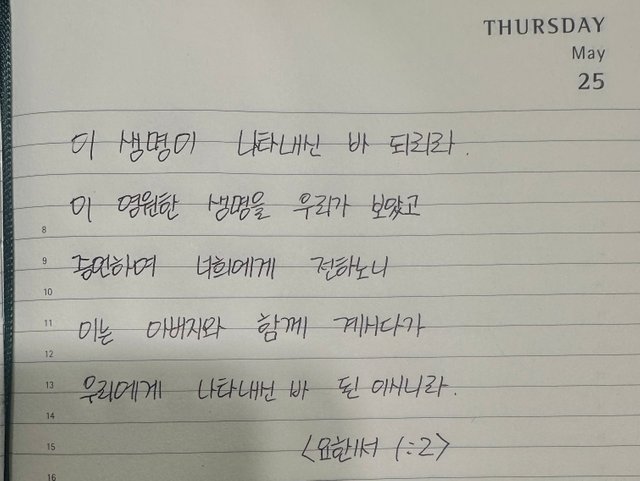 THURSDAY
May
25
이 생명이 나타내신 바 되리라.
이 영원한 생명을 우리가 보았고
8
9 증언하여 너희에게 전하노니
10
11 이는 아버지와 함께 계시다가
12
13 우리에게 나타내신 바 된 이시니라.
14
15 <요한1서 1:2>
16